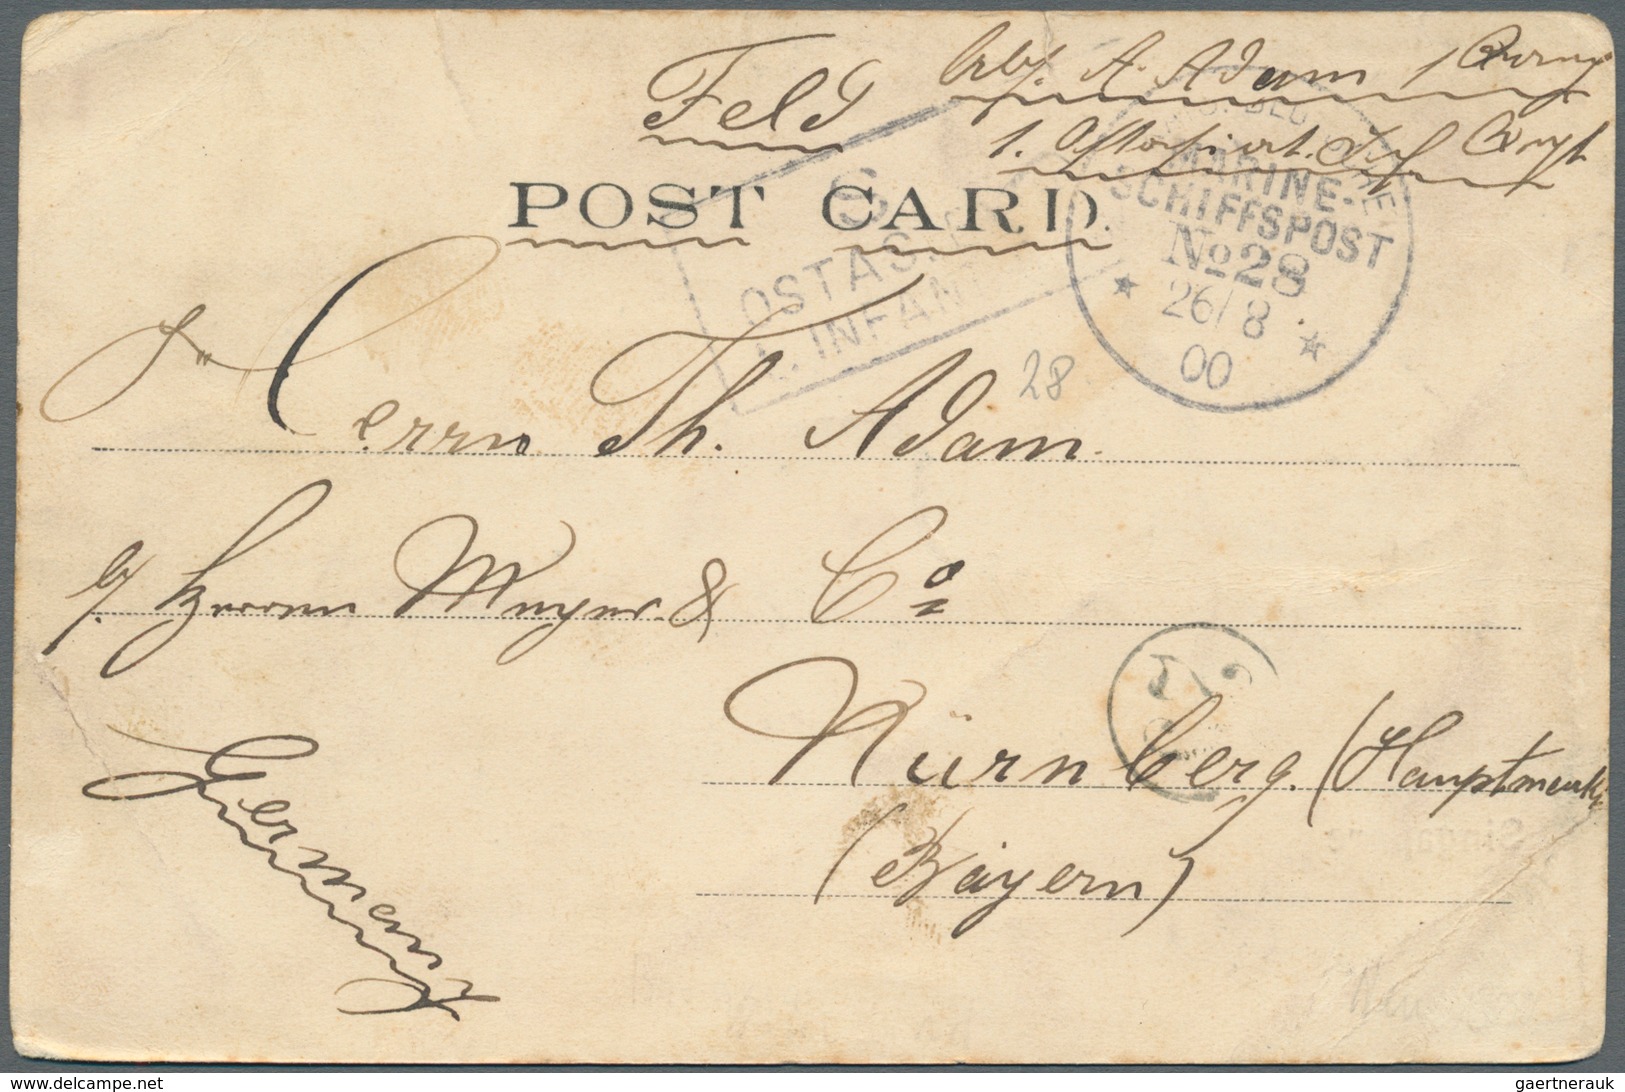 Feld
A. Adam
1.
POST CARD.
S
OSTAS
INFAN
MARINE-
SCHIFFSPOST
No 28
26/8
00
28
Herrn Th. Adam.
Herren Meyer & Co
Nürnberg. (Hauptmarkt
(Bayern)
Germany
delcampe.net
gaertnerauk